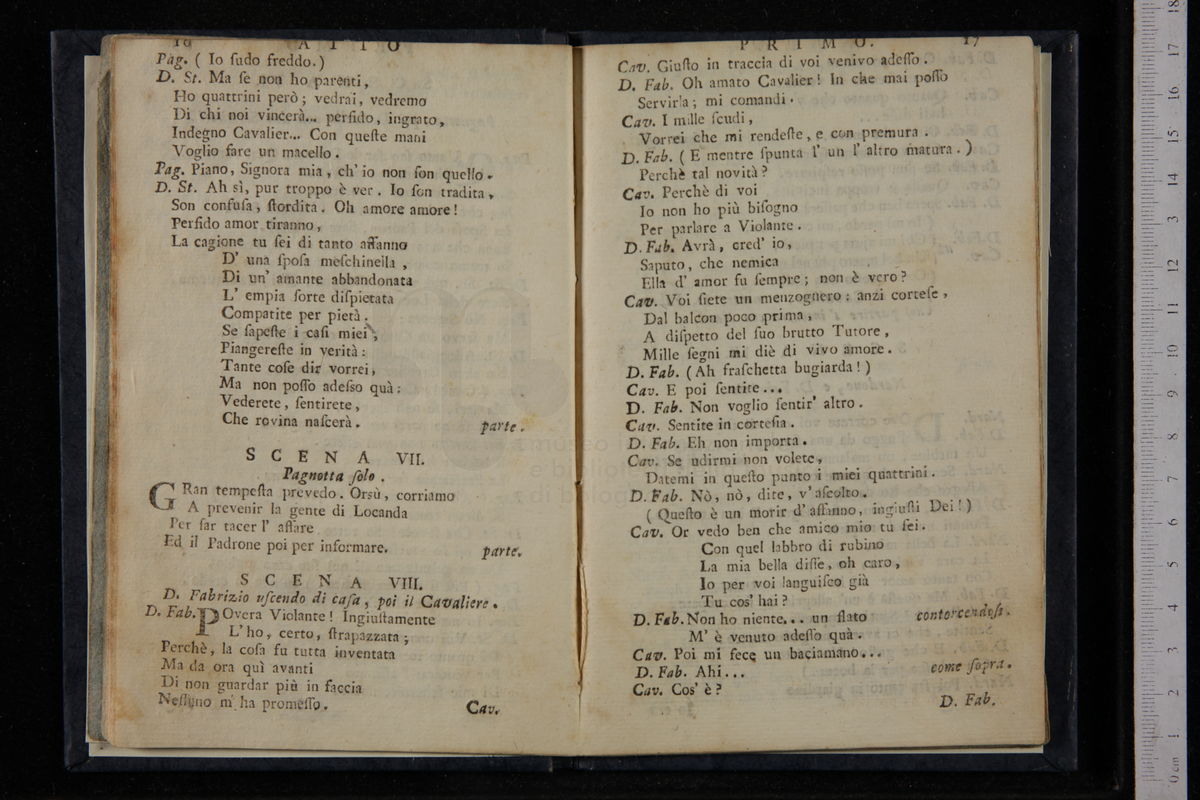 16 ATTO
Pag. ( Io ſudo freddo. )
D. St. Ma ſe non ho parenti,
Ho quattrini però; vedrai, vedremo
Di chi noi vincerà... perfido, ingrato,
Indegno Cavalier... Con queſte mani
Voglio fare un macello.
Pag. Piano, Signora mia, ch' io non ſon quello.
D. St. Ah sì, pur troppo è ver. Io ſon tradita,
Son confuſa, ſtordita. Oh amore amore!
Perfido amor tiranno,
La cagione tu ſei di tanto affanno
D' una ſpoſa meſchinella,
Di un' amante abbandonata
L' empia ſorte diſpietata
Compatite per pietà.
Se ſapeſte i caſi miei,
Piangereſte in verità:
Tante coſe dir vorrei,
Ma non poſſo adeſso quà:
Vederete, ſentirete,
Che rovina naſcerà. parte.
SCENA VII.
Pagnotta ſolo.
GRan tempeſta prevedo. Orsù, corriamo
A prevenir la gente di Locanda
Per far tacer l' affare
Ed il Padrone poi per informare. parte.
SCENA VIII.
D. Fabrizio uſcendo di caſa, poi il Cavaliere.
D. Fab. POvera Violante! Ingiuſtamente
L' ho, certo, ſtrapazzata;
Perchè, la coſa fu tutta inventata
Ma da ora quì avanti
Di non guardar più in faccia
Neſſuno m' ha promeſſo.
Cav.
PRIMO. 17
Cav. Giuſto in traccia di voi venivo adeſſo.
D. Fab. Oh amato Cavalier! In che mai poſſo
Servirla; mi comandi.
Cav. I mille ſcudi,
Vorrei che mi rendeſte, e con premura.
D. Fab. ( E mentre ſpunta l' un l' altro matura. )
Perchè tal novità?
Cav. Perchè di voi
Io non ho più biſogno
Per parlare a Violante.
D. Fab. Avrà, cred' io,
Saputo, che nemica
Ella d' amor fu ſempre; non è vero?
Cav. Voi ſiete un menzognero: anzi corteſe,
Dal balcon poco prima,
A diſpetto del ſuo brutto Tutore,
Mille ſegni mi diè di vivo amore.
D. Fab. (Ah fraſchetta bugiarda! )
Cav. E poi ſentite...
D. Fab. Non voglio ſentir' altro.
Cav. Sentite in corteſia.
D. Fab. Eh non importa.
Cav. Se udirmi non volete,
Datemi in queſto punto i miei quattrini.
D. Fab. Nò, nò, dite, v' aſcolto.
( Queſto è un morir d' affanno, ingiuſti Dei! )
Cav. Or vedo ben che amico mio tu ſei.
Con quel labbro di rubino
La mia bella diſſe, oh caro,
Io per voi languiſco già
Tu cos' hai?
D. Fab. Non ho niente... un flato contorcendoſi.
M' è venuto adeſſo quà.
Cav. Poi mi fece un baciamano...
D. Fab. Ahi... come ſopra.
Cav. Cos' è?
D. Fab.